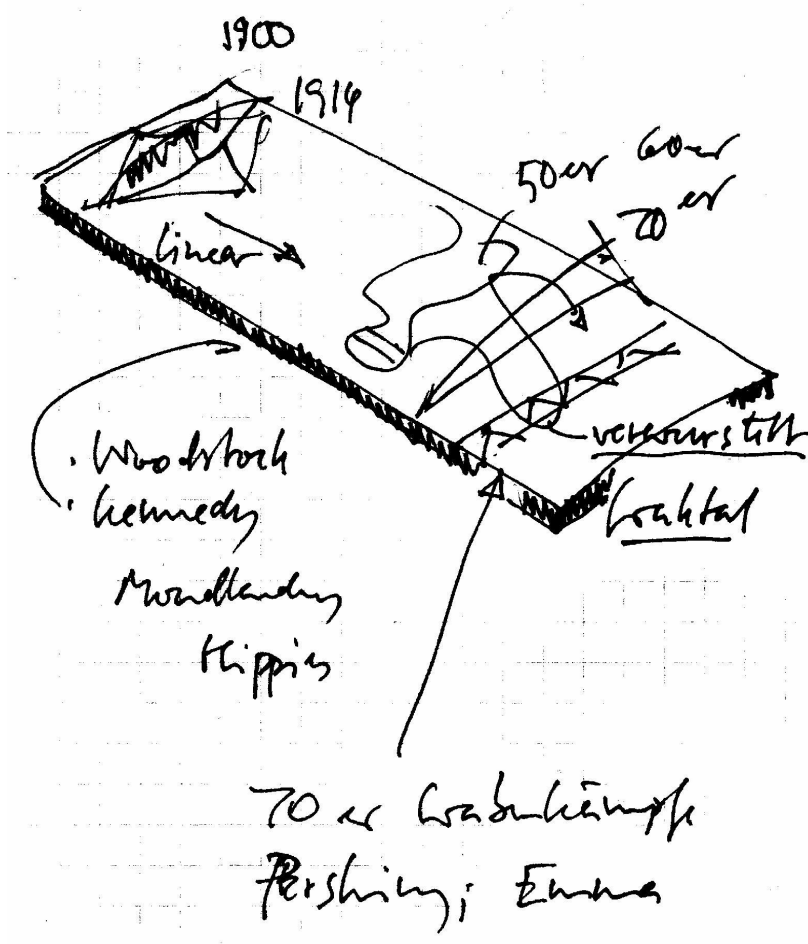 1900
1914
50er 60er
70er
linear
verwurstelt
fraktal
· Woodstock
· Kennedy
Mondlandung
Hippies
70er Grabenkämpfe
Pershing; Emma